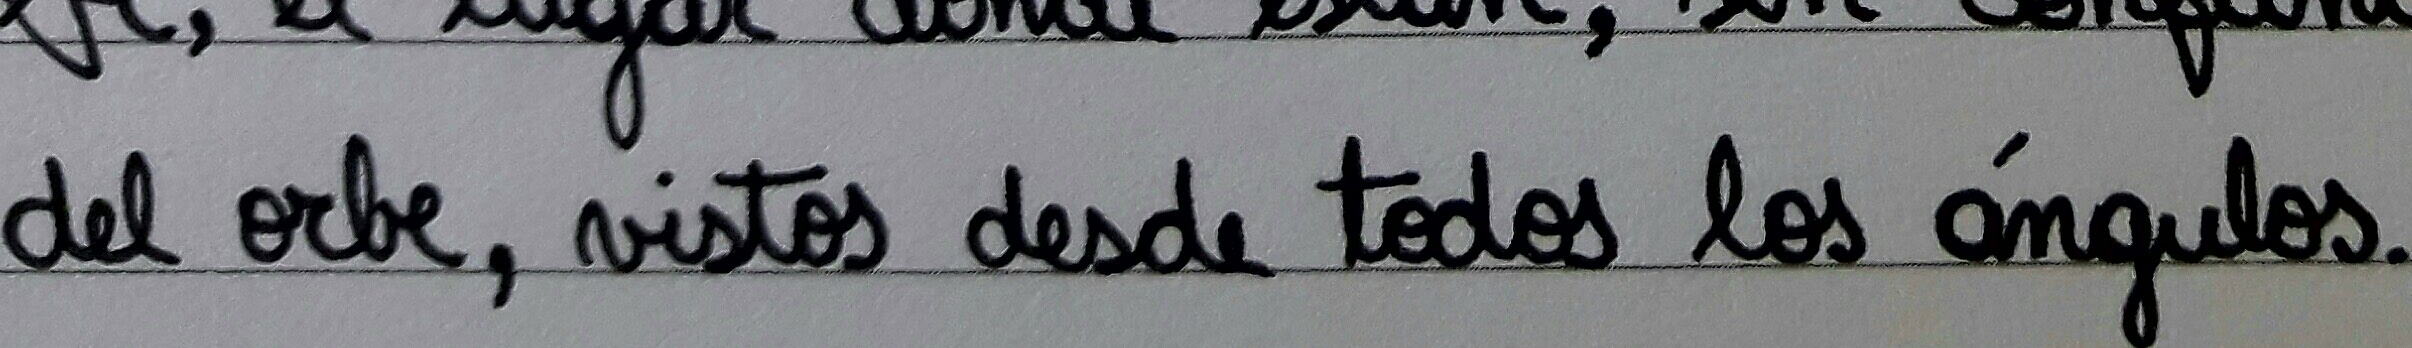 el lugar donde están, sin
del orbe, vistos desde todos los ángulos.